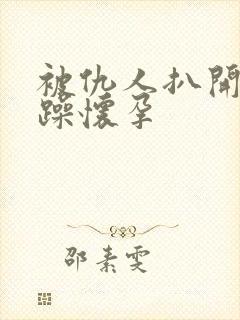 被仇人扒開
躁懷孕
邵素雯